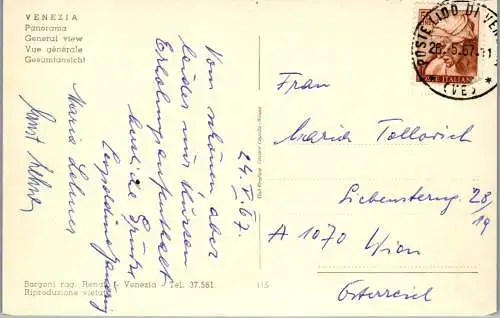 VENEZIA
Panorama
General view
Vue générale
Gesamtansicht
24. V. 67.
Vom schönen aber
leider nur kurzen
Erholungsaufenthalt
herzliche Grüße
Maria
Ernst
Frau
Maria
28/19
A 1070 Wien
Österreich
POSTE LIDO DI VEN
26.-5.67.-21
(VE)
POSTE ITALIANE
Bargoni rag. Renzo - Venezia - Tel. 37.561
Riproduzione vietata
115